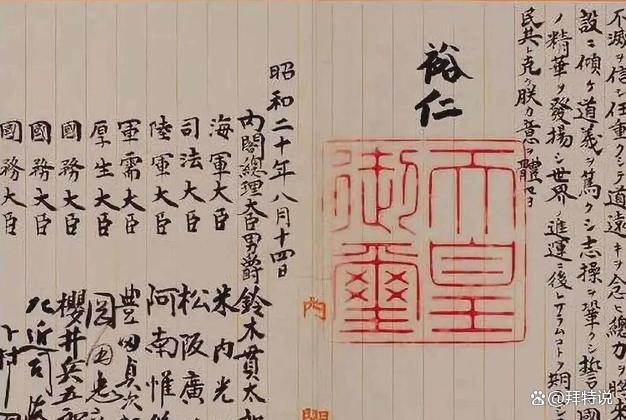 不滅ヲ信シ任重クシテ道遠キヲ念ヒ總力ヲ將
設ニ傾ケ道義ヲ篤クシ志操ヲ鞏クシ誓國
ノ精華ヲ發揚シ世界ノ進運ニ後レサラムコトヲ期
民其レ克ク朕カ意ヲ體セヨ
裕仁
天皇
御璽
内閣
昭和二十年八月十四日
内閣總理大臣男爵 鈴木貫太
海軍大臣 米内光
司法大臣 松阪廣
陸軍大臣 阿南惟
軍需大臣 豊田貞次
厚生大臣 岡田忠
國務大臣 櫻井兵五
國務大臣 左近司
國務大臣 下村
@拜特说